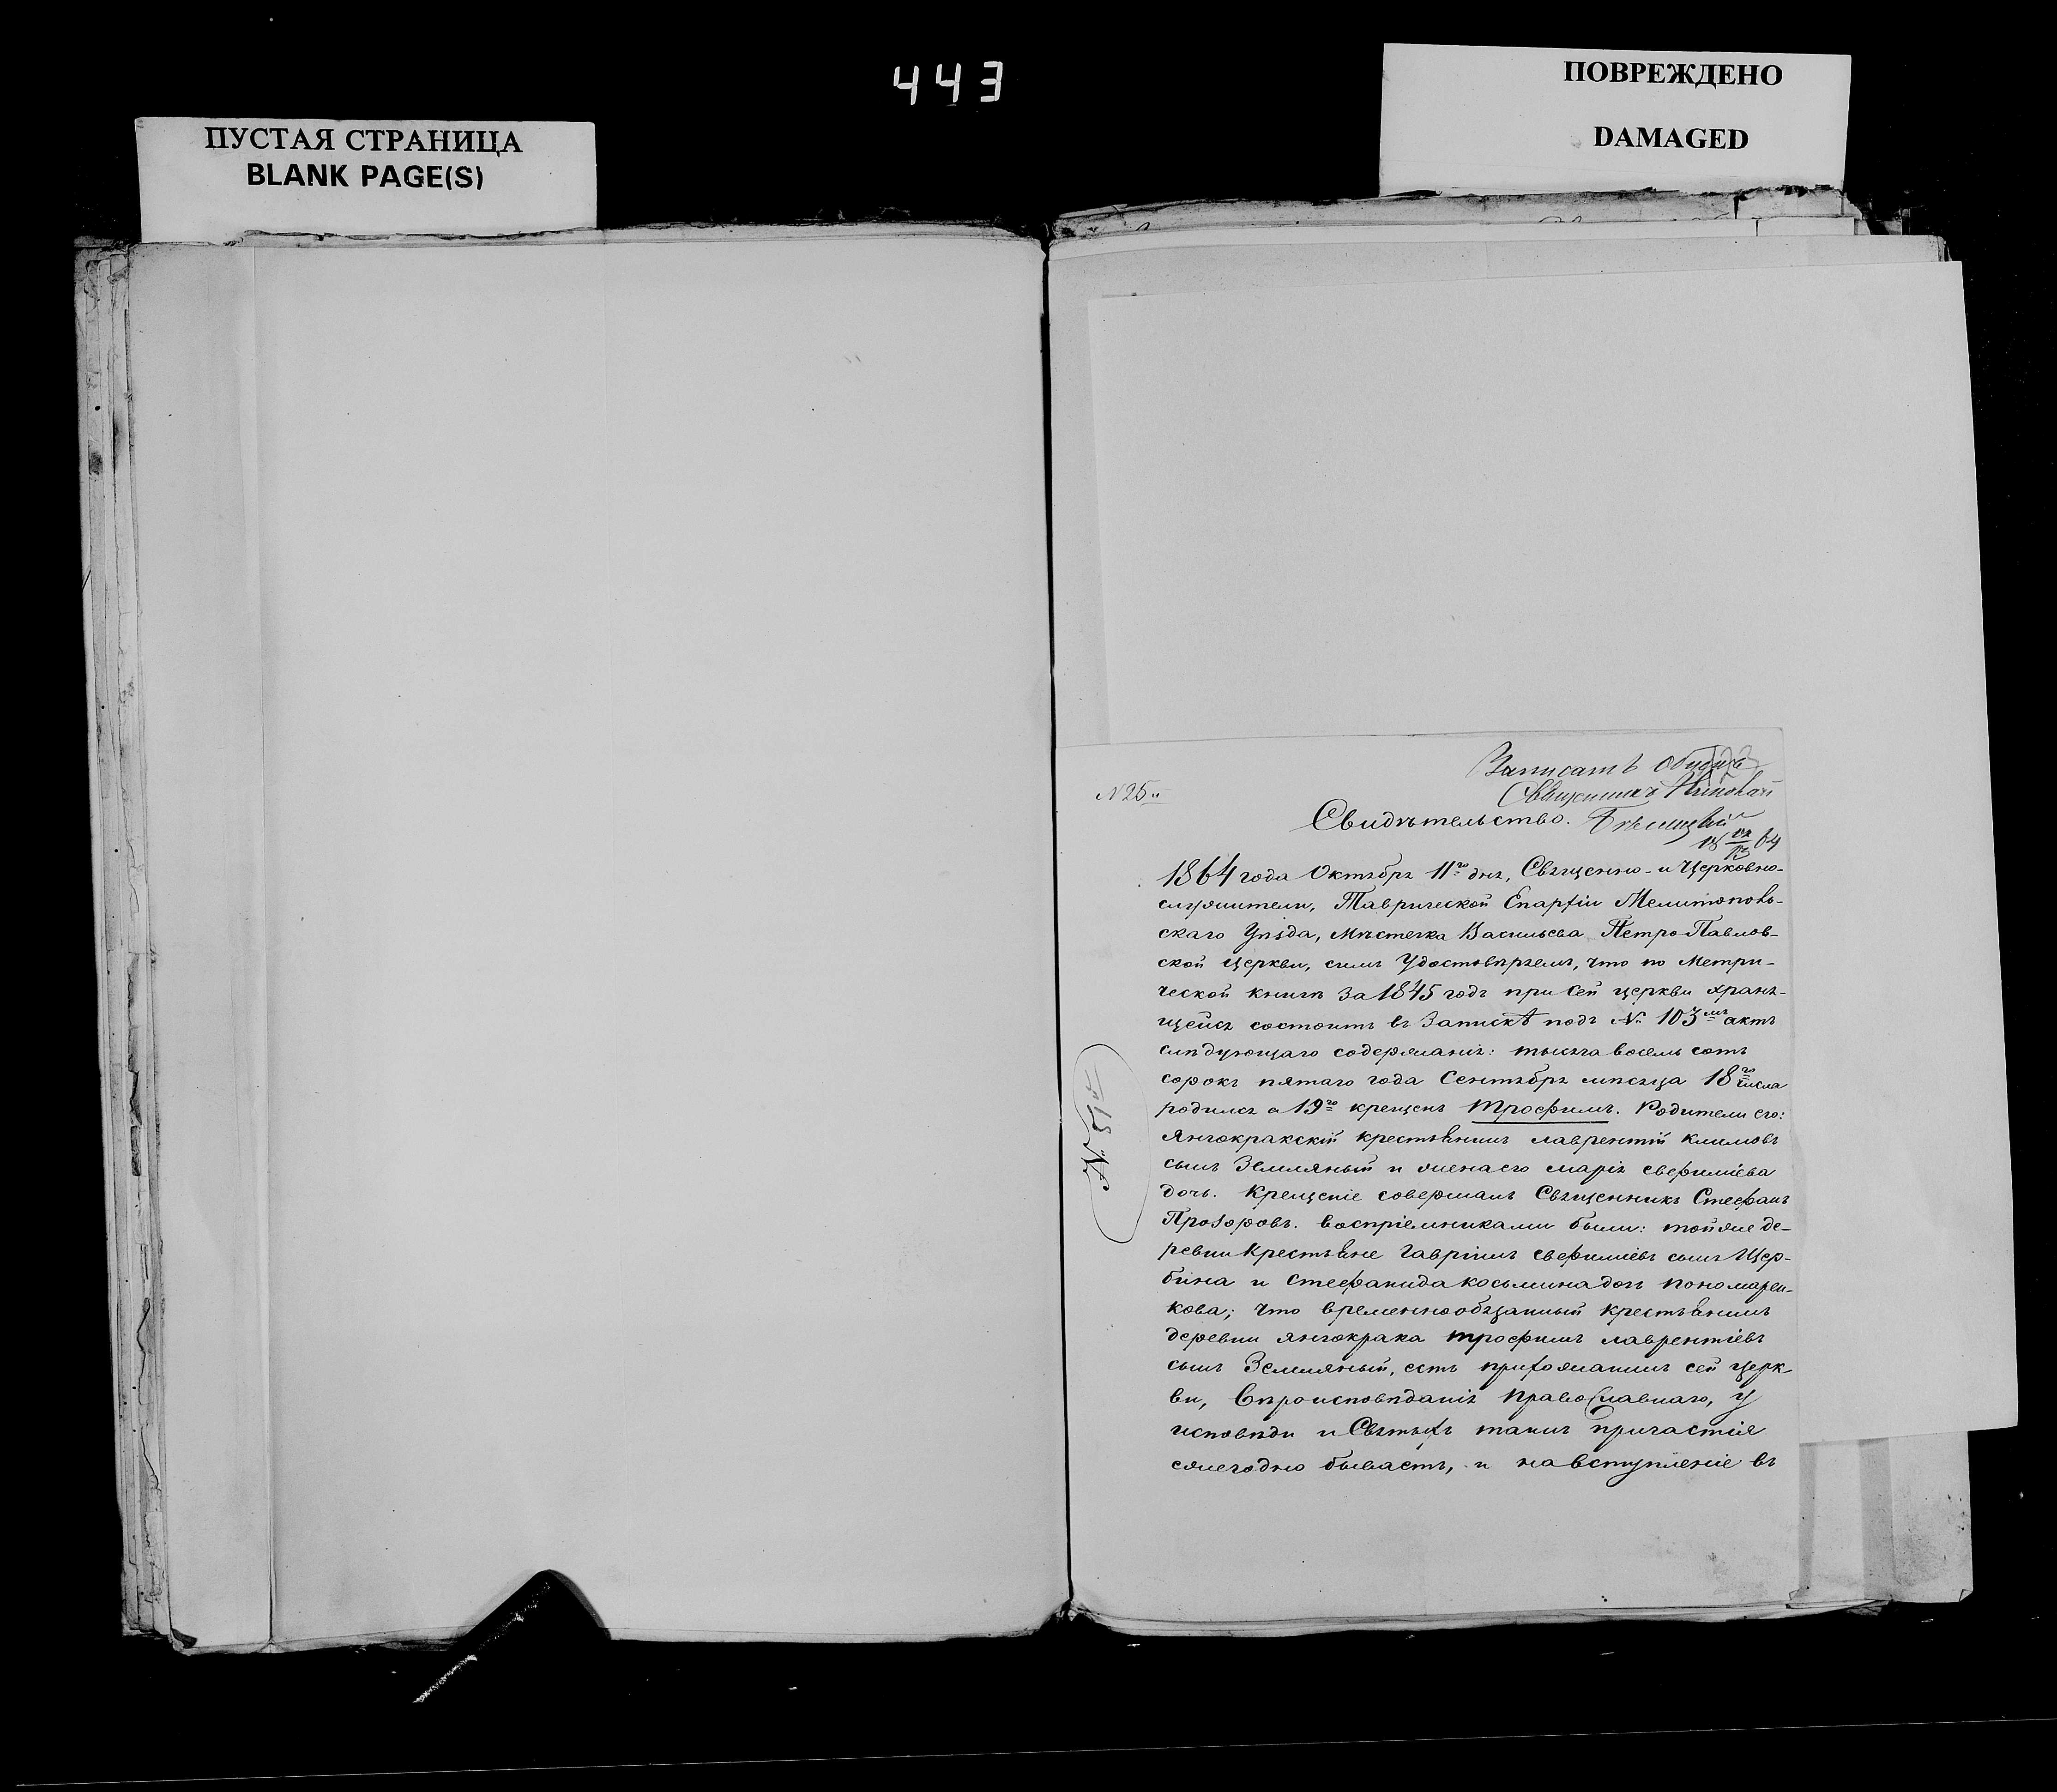 443
ПУСТАЯ СТРАНИЦА
BLANK PAGE(S)
ПОВРЕЖДЕНО
DAMAGED
Записать
Священникъ
N 25й
Свидѣтельство.
18 64
1864 года Октября 11го дня, Священно- и Церковно-
служители, Таврической Епархіи Мелитополь-
скаго Уѣзда, Мѣстечка Васильева Петро-Павлов-
ской церкви, симъ удостовѣряемъ, что по Метри-
ческой книгѣ за 1845 годъ при сей церкви храня-
щейся состоитъ въ запискѣ подъ № 103мъ актъ
слѣдующаго содержанія: тысяча восемь сотъ
сорокъ пятаго года Сентября мѣсяца 18го числа
родился а 19го крещенъ Трофимъ. Родители его:
Янчокракскій крестьянинъ лаврентій климовъ
сынъ Земляный и жена его марія евфиміева
дочь. Крещеніе совершалъ Священникъ Стефанъ
Прозоровъ. воспріемниками были: той же де-
ревни крестьяне гавріилъ евфиміевъ сынъ Щер-
бина и стефанида косьмина дочь пономарен-
кова; что временнообязанный крестьянинъ
деревни янчокрака трофимъ лаврентіевъ
сынъ Земляный, есть прихожанинъ сей церк-
ви, вѣроисповѣданія православнаго, у
исповѣди и Святыхъ таинъ причастіи
ежегодно бываетъ, и на вступленіе въ
№ 51й